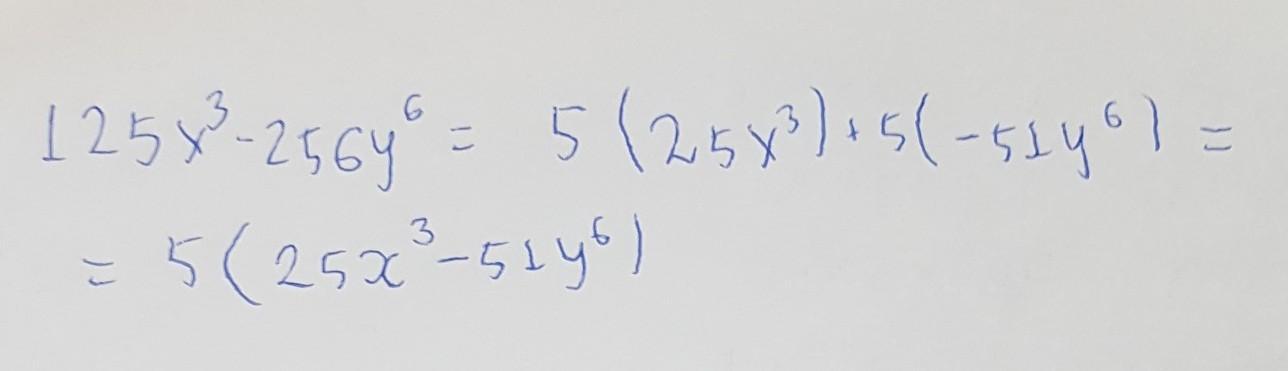 125x³-256y⁶ = 5(25x³)+5(-51y⁶) =
= 5(25x³-51y⁶)